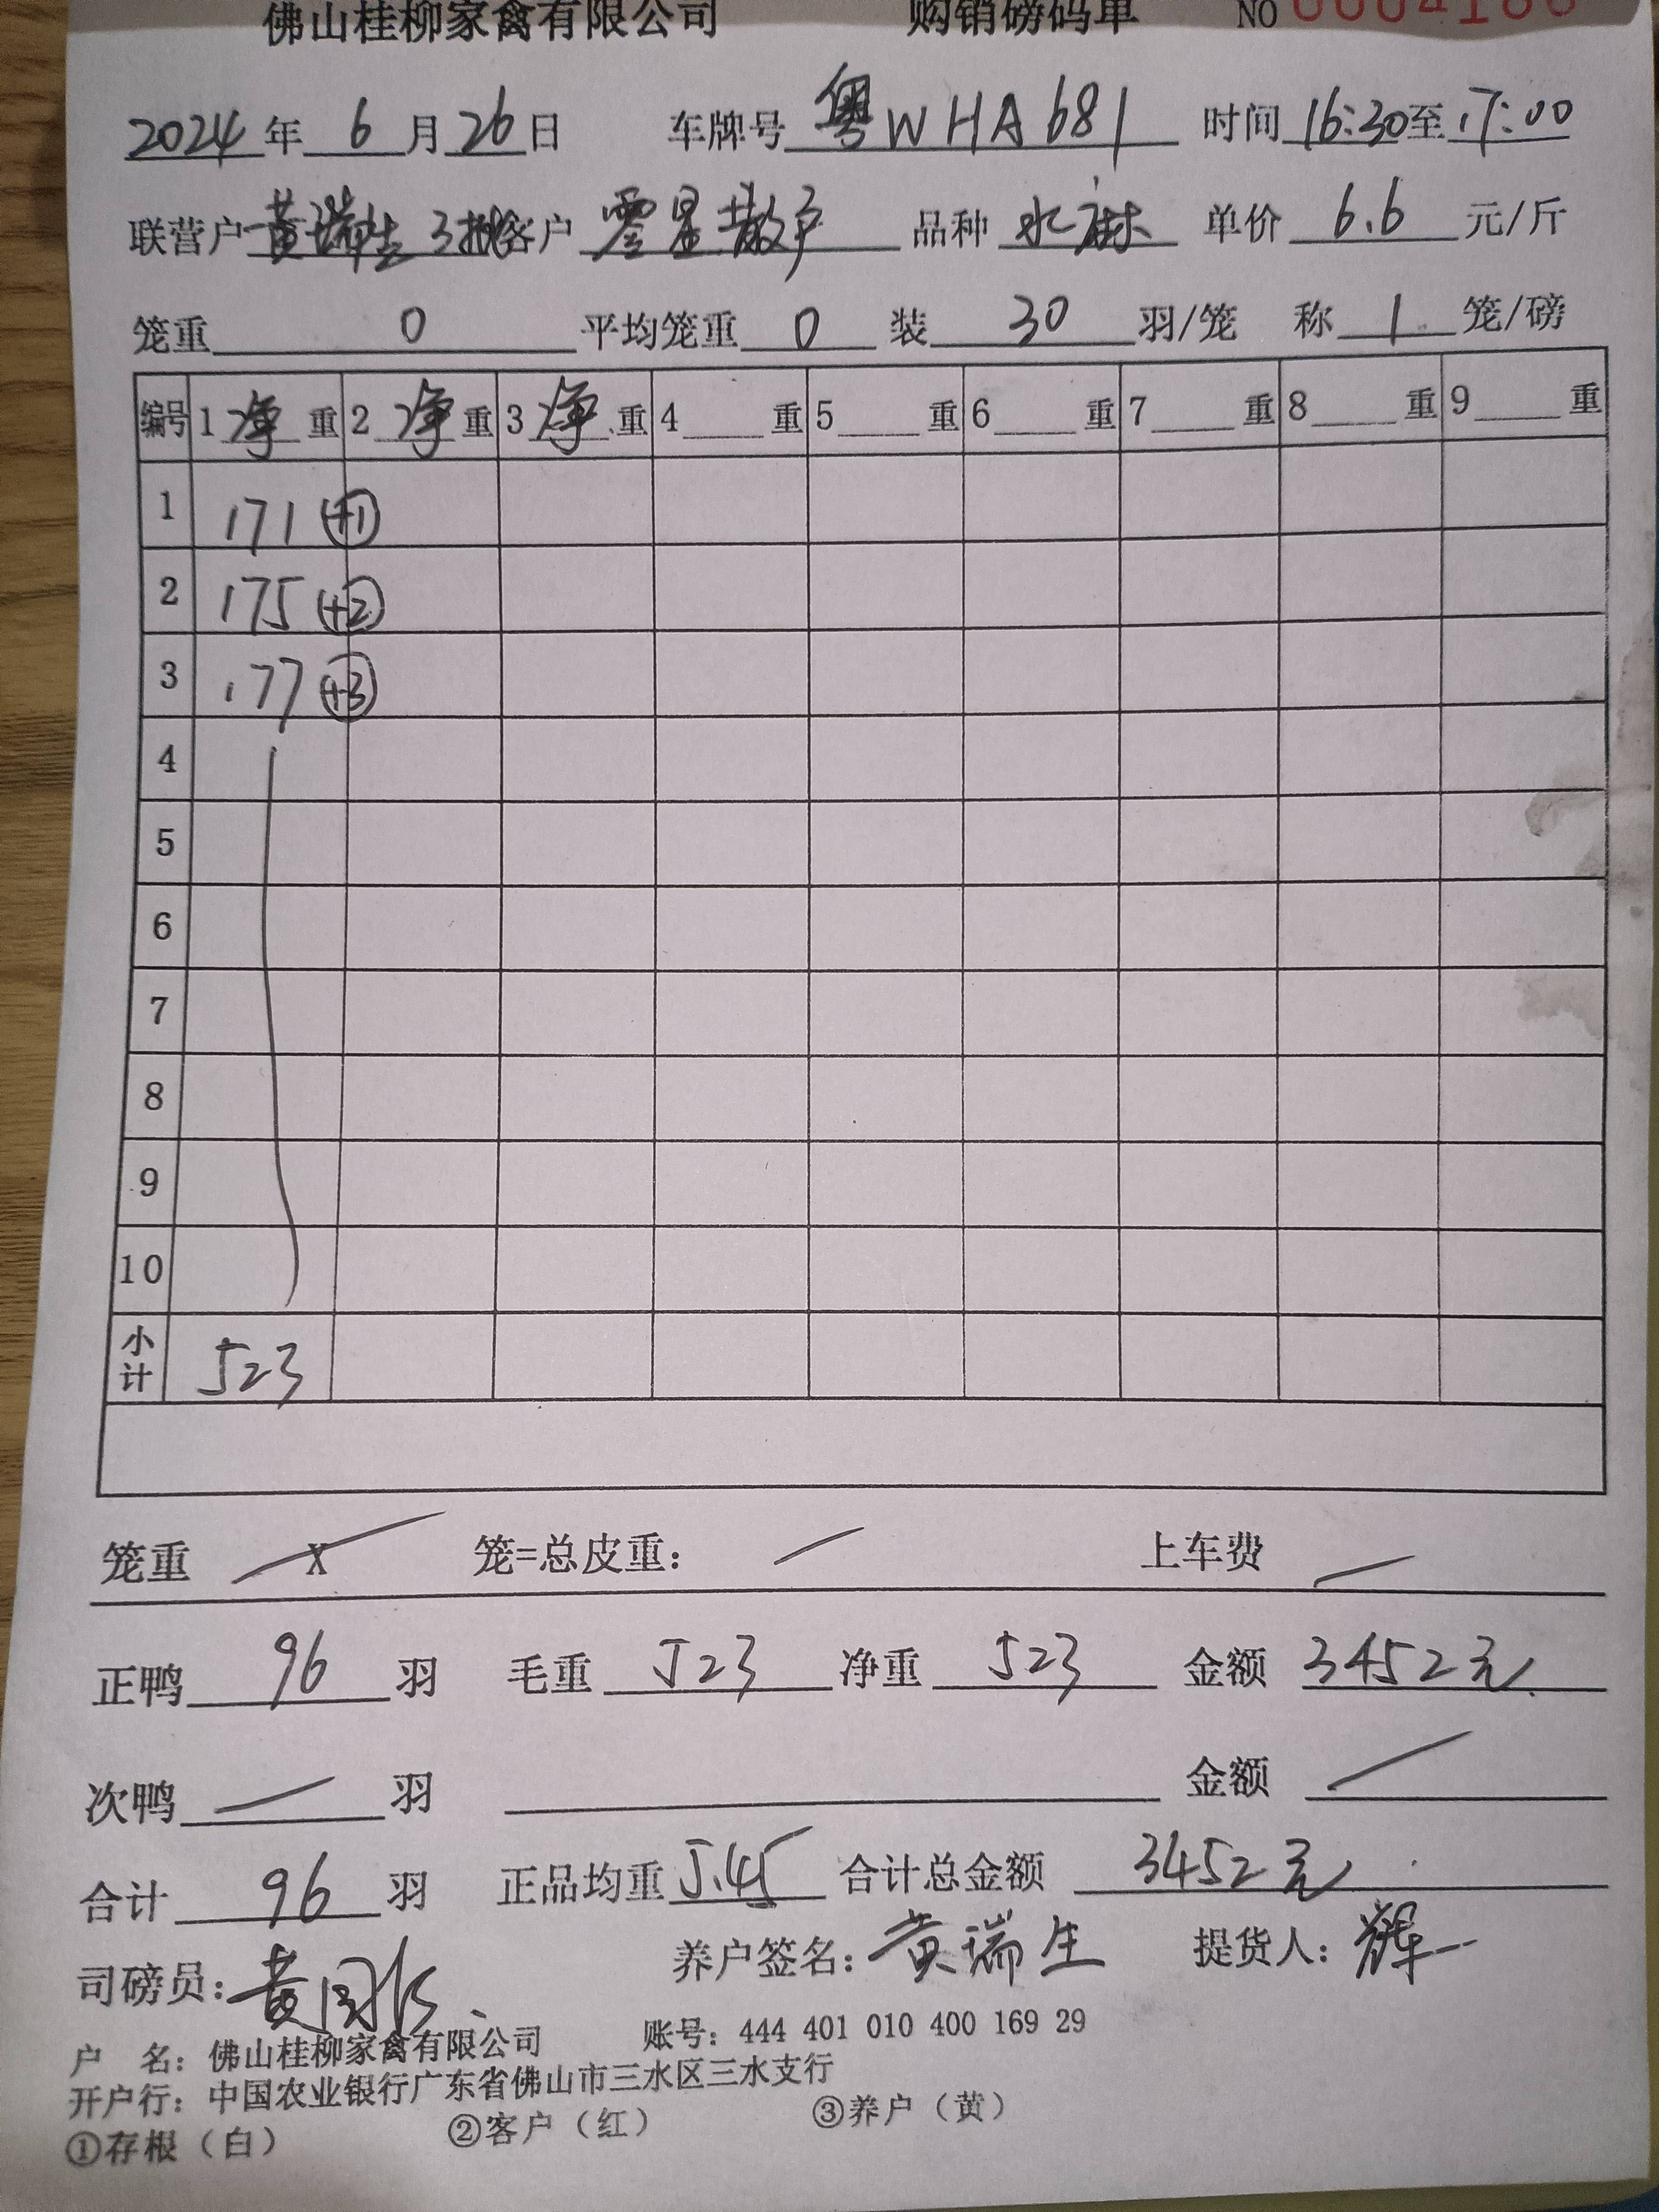 佛山桂柳家禽有限公司 购销磅码单 NO 0004186
2024年6月26日 车牌号 粤WHA681 时间 16:30至17:00
联营户 黄瑞生 3批 客户 零星散户 品种 水麻 单价 6.6 元/斤
笼重 0 平均笼重 0 装 30 羽/笼 称 1 笼/磅
编号 1净重 2净重 3净重 4 重 5 重 6 重 7 重 8 重 9 重
1 171 (+1)
2 175 (+2)
3 177 (+3)
4
5
6
7
8
9
10
小计 523
笼重 X 笼=总皮重: 上车费
正鸭 96 羽 毛重 523 净重 523 金额 3452元
次鸭 羽 金额
合计 96 羽 正品均重 5.45 合计总金额 3452元
司磅员: 黄 养户签名: 黄瑞生 提货人: 辉
户 名: 佛山桂柳家禽有限公司 账号: 444 401 010 400 169 29
开户行: 中国农业银行广东省佛山市三水区三水支行
①存根（白） ②客户（红） ③养户（黄）